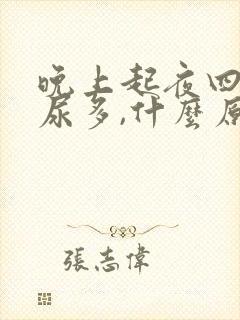 晚上起夜四
尿多,什麼原
張志偉